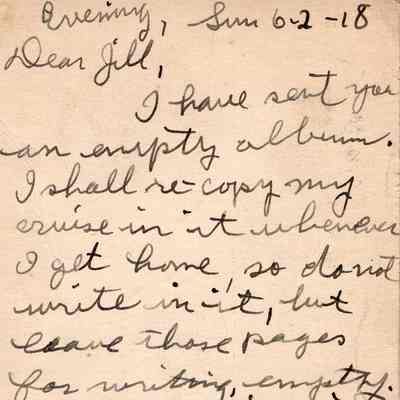 Evening, Sun 6-2-18
Dear Jill,
I have sent you
an empty album.
I shall re-copy my
cruise in it whenever
I get home, so do not
write in it, but
leave those pages
for writing, empty.